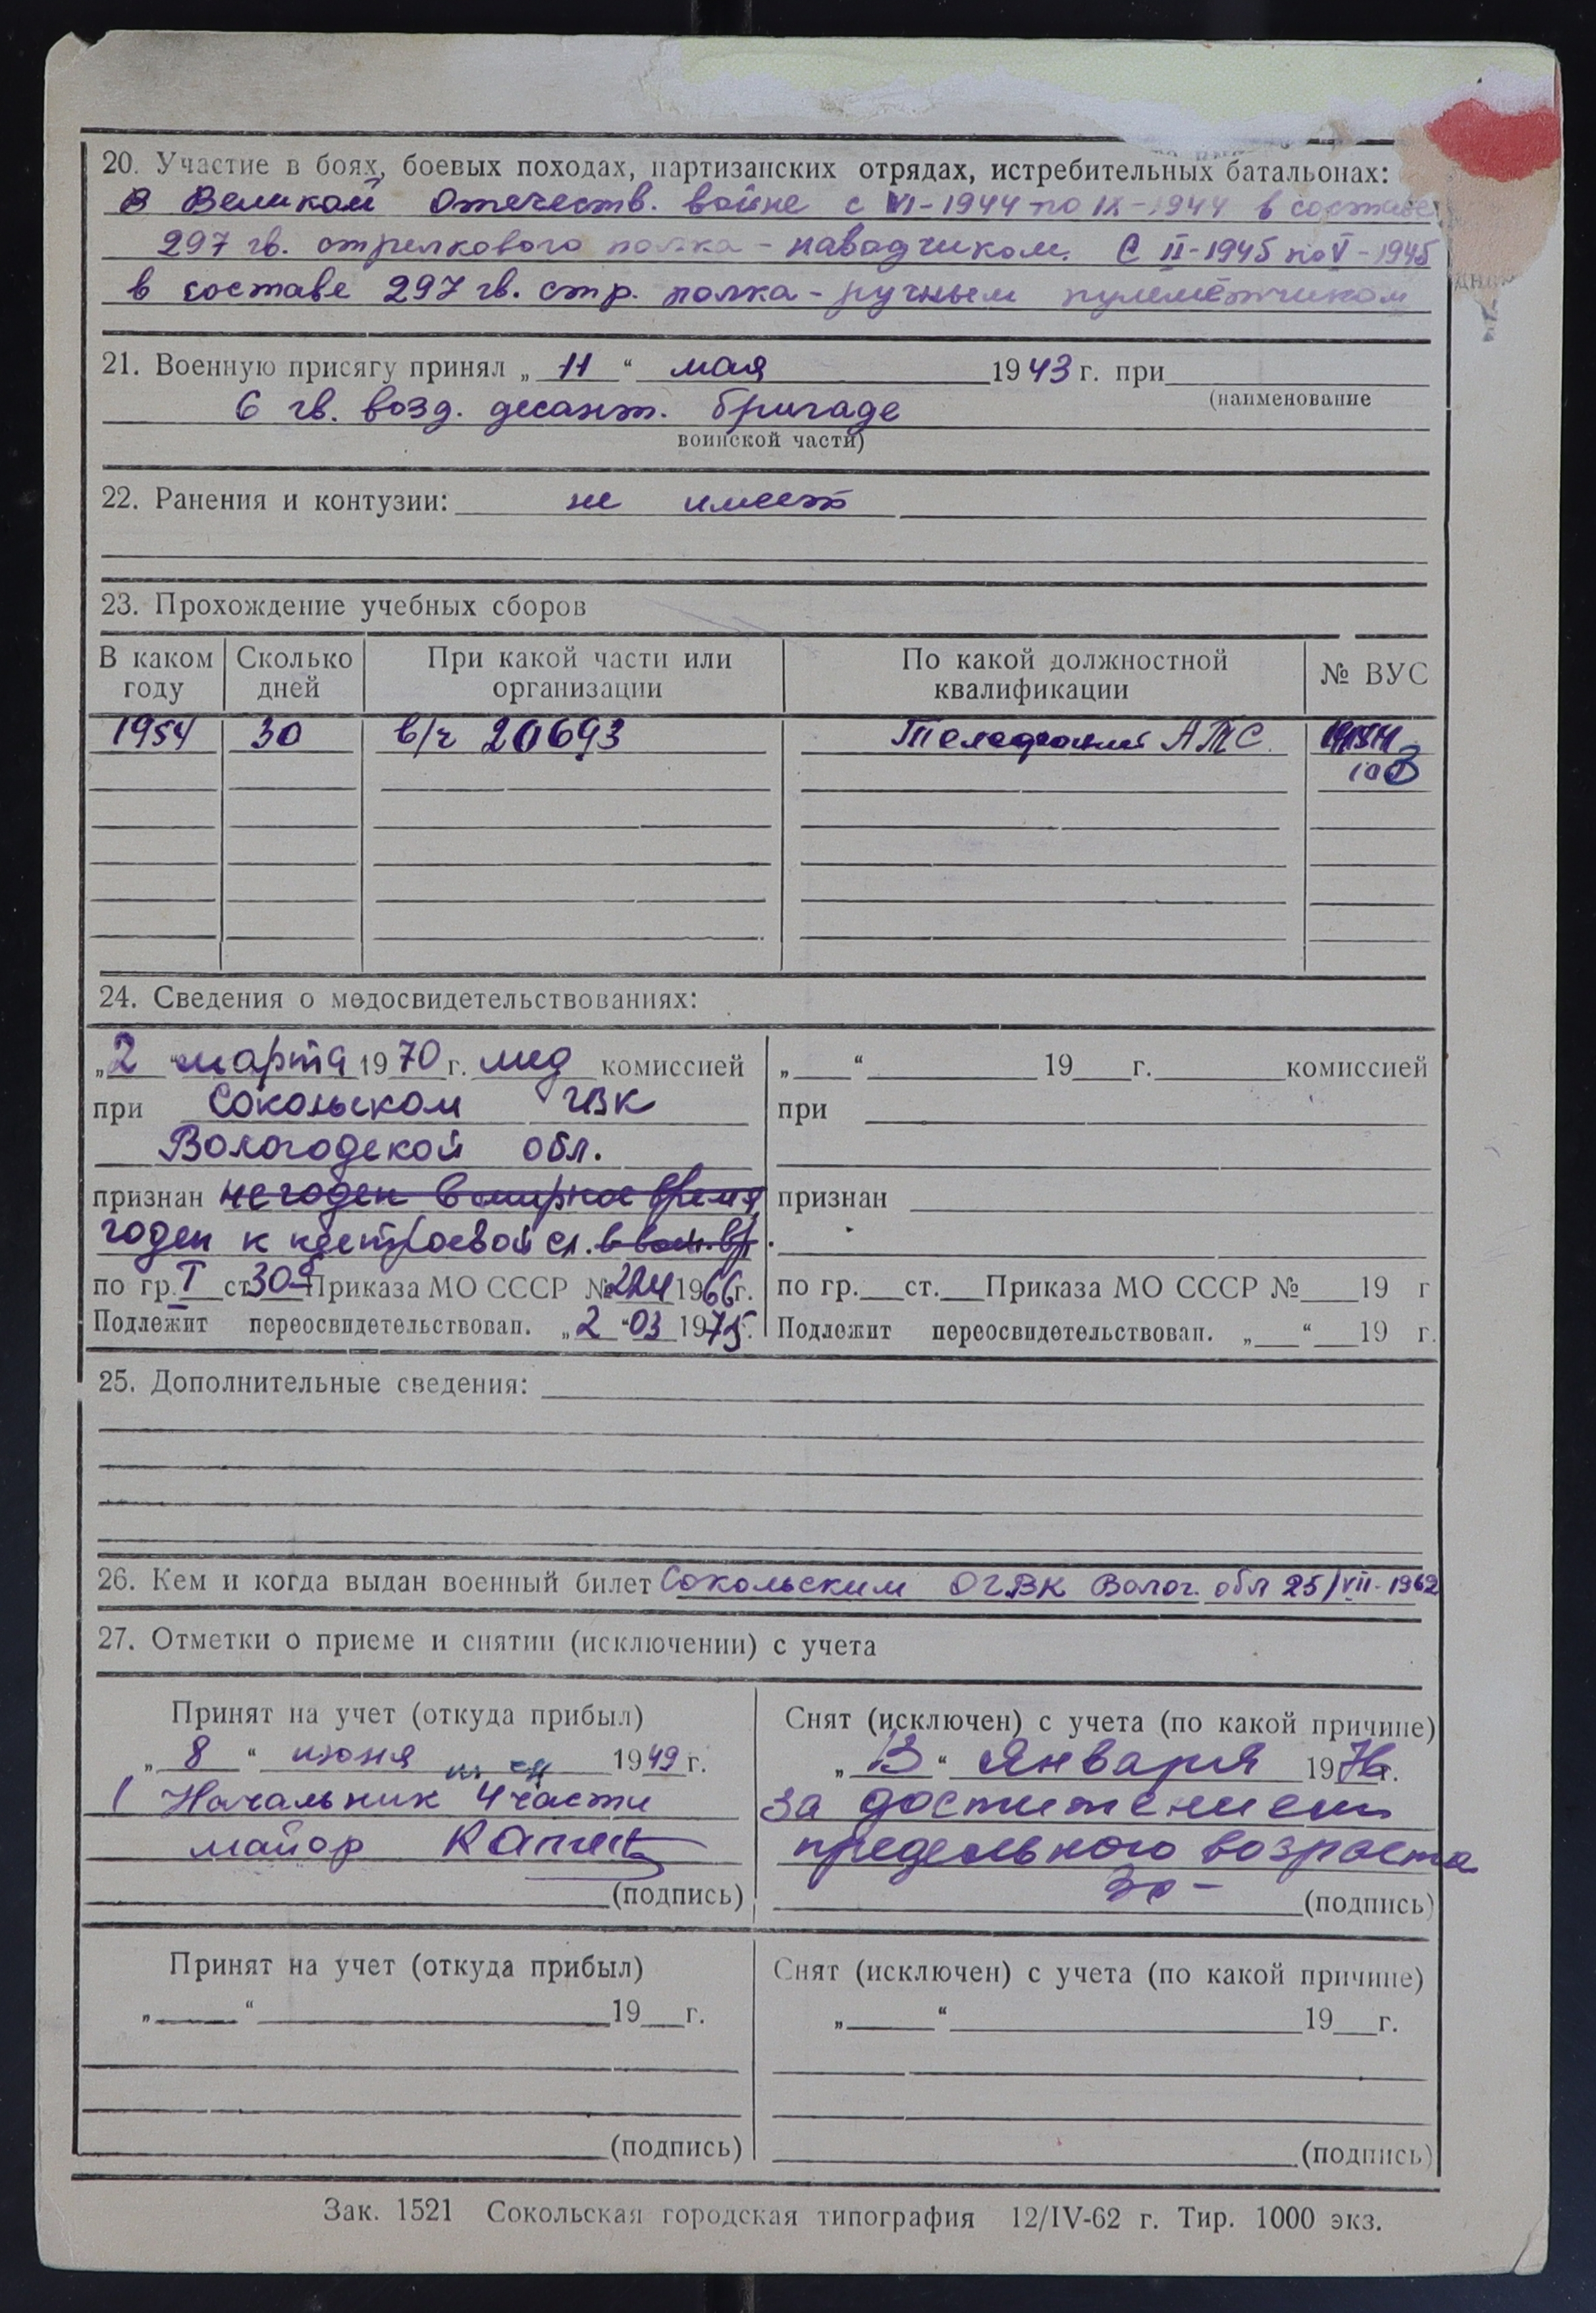 20. Участие в боях, боевых походах, партизанских отрядах, истребительных батальонах:
в Великой Отечеств. войне с VI-1944 по IX-1944 в составе
297 гв. стрелкового полка - наводчиком. С II-1945 по V-1945
в составе 297 гв. стр. полка - ручным пулемётчиком
21. Военную присягу принял „ 11 “ мая 1943 г. при
(наименование
6 гв. возд. десант. бригаде
воинской части)
22. Ранения и контузии: не имеет
23. Прохождение учебных сборов
В каком году Сколько дней При какой части или организации По какой должностной квалификации № ВУС
1954 30 в/ч 20693 АТС
24. Сведения о медосвидетельствованиях:
„2“ марта 1970 г. мед комиссией
при Сокольском ГВК
Вологодской обл.
признан не годен в мирное время,
годен к нестроевой сл. в воен. вр.
по гр. I ст. 30-б Приказа МО СССР № 224 1966 г.
Подлежит переосвидетельствован. „2“ 03 1975 г.
„ “ 19 г. комиссией
при
признан
по гр. ст. Приказа МО СССР № 19 г
Подлежит переосвидетельствован. „ “ 19 г.
25. Дополнительные сведения:
26. Кем и когда выдан военный билет Сокольским ОГВК Волог. обл 25/VII-1962
27. Отметки о приеме и снятии (исключении) с учета
Принят на учет (откуда прибыл)
„ 8 “ июня 1949 г.
Начальник 4 части
майор
(подпись)
Снят (исключен) с учета (по какой причине)
„ 13 “ Января 1976 г.
за достижением
предельного возраста
(подпись)
Принят на учет (откуда прибыл)
„ “ 19 г.
(подпись)
Снят (исключен) с учета (по какой причине)
„ “ 19 г.
(подпись)
Зак. 1521 Сокольская городская типография 12/IV-62 г. Тир. 1000 экз.